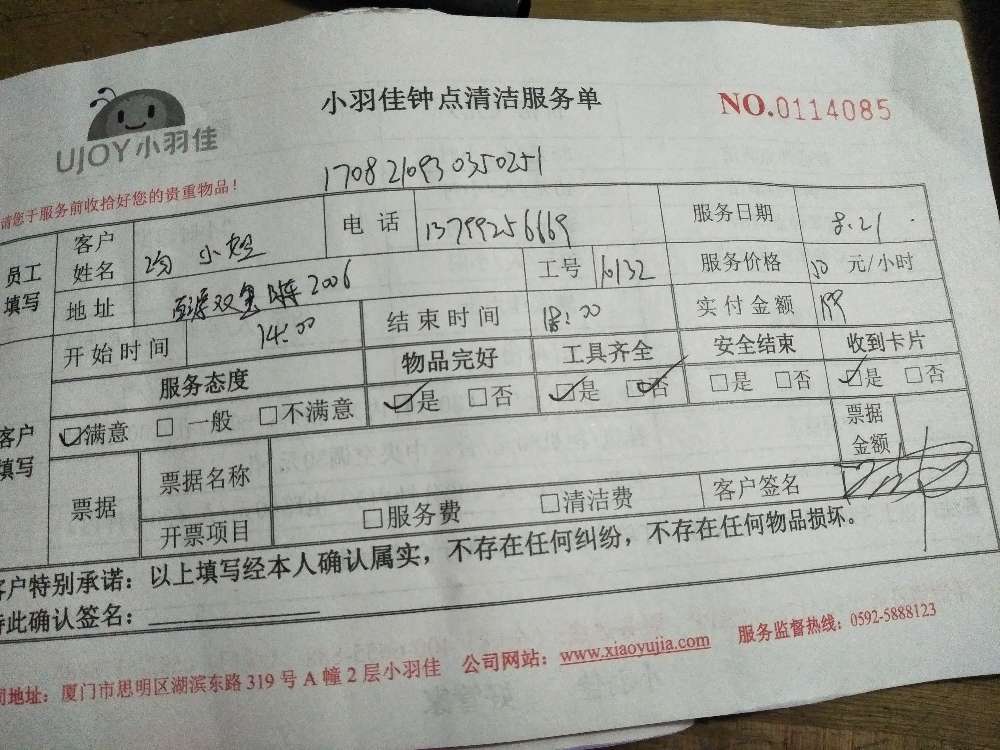 小羽佳钟点清洁服务单
NO.0114085
UJOY小羽佳
1708210930350251
请您于服务前收拾好您的贵重物品！
员工填写 客户姓名 小姐 电话 13799256669 服务日期 8.21
地址 2006 工号 16132 服务价格 50 元/小时
开始时间 14:00 结束时间 18:00 实付金额 199
客户填写 服务态度 物品完好 工具齐全 安全结束 收到卡片
☑满意 □一般 □不满意 ☑是 □否 ☑是 ☑否 □是 □否 ☑是 □否
票据 票据名称 票据金额
开票项目 □服务费 □清洁费 客户签名
客户特别承诺：以上填写经本人确认属实，不存在任何纠纷，不存在任何物品损坏。
特此确认签名：
司地址：厦门市思明区湖滨东路319号A幢2层小羽佳 公司网站：www.xiaoyujia.com 服务监督热线：0592-5888123